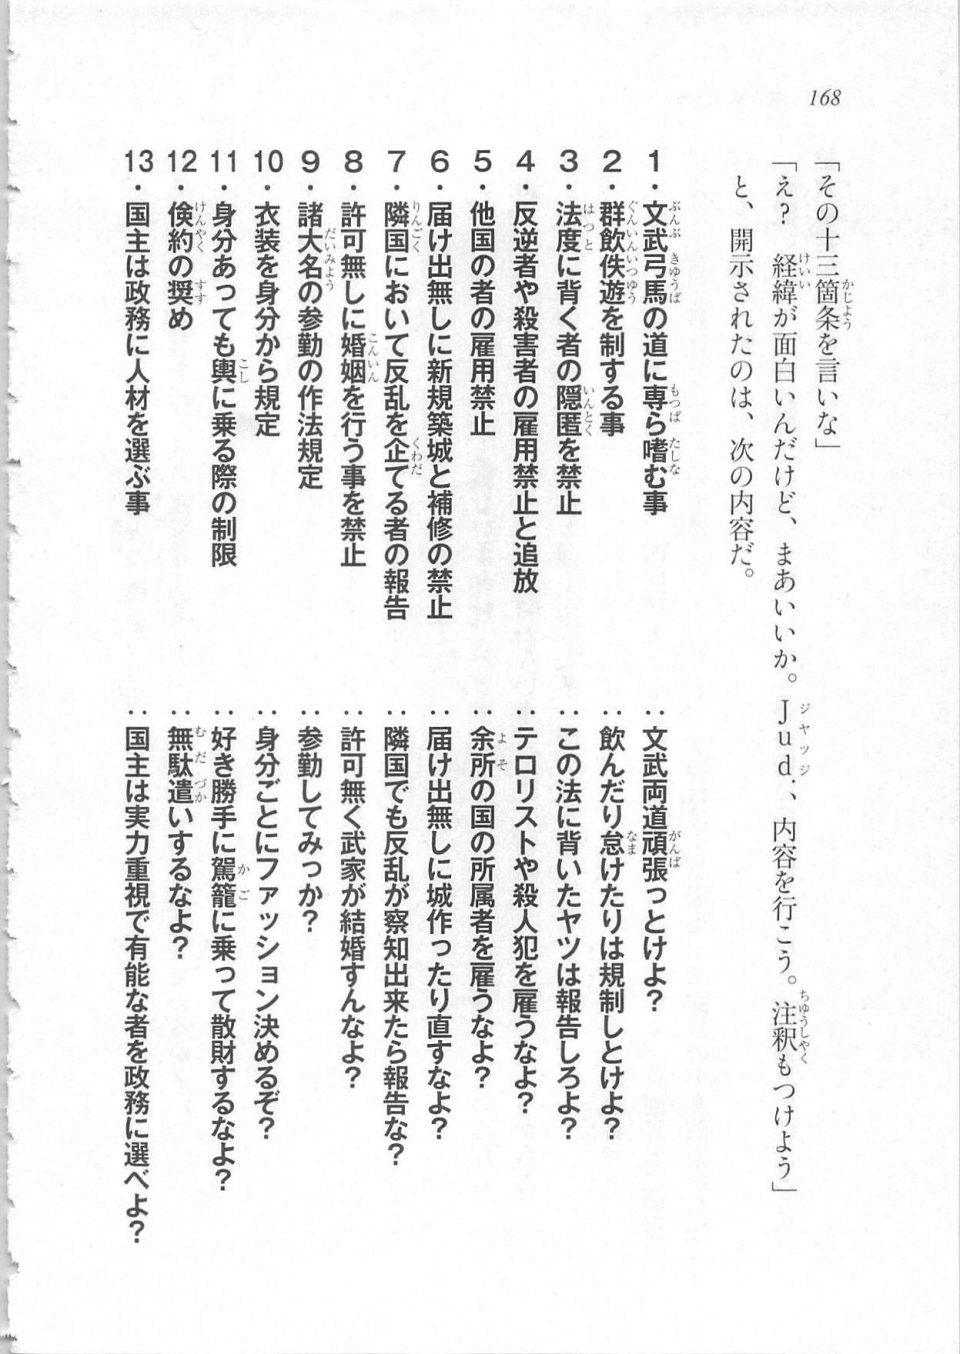 168
「その十三箇条を言いな」
「え？　経緯が面白いんだけど、まあいいか。Ｊｕｄ．、内容を行こう。注釈もつけよう」
と、開示されたのは、次の内容だ。
1・文武弓馬の道に専ら嗜む事　：文武両道頑張っとけよ？
2・群飲佚遊を制する事　：飲んだり怠けたりは規制しとけよ？
3・法度に背く者の隠匿を禁止　：この法に背いたヤツは報告しろよ？
4・反逆者や殺害者の雇用禁止と追放　：テロリストや殺人犯を雇うなよ？
5・他国の者の雇用禁止　：余所の国の所属者を雇うなよ？
6・届け出無しに新規築城と補修の禁止　：届け出無しに城作ったり直すなよ？
7・隣国において反乱を企てる者の報告　：隣国でも反乱が察知出来たら報告な？
8・許可無しに婚姻を行う事を禁止　：許可無く武家が結婚すんなよ？
9・諸大名の参勤の作法規定　：参勤してみっか？
10・衣装を身分から規定　：身分ごとにファッション決めるぞ？
11・身分あっても輿に乗る際の制限　：好き勝手に駕籠に乗って散財するなよ？
12・倹約の奨め　：無駄遣いするなよ？
13・国主は政務に人材を選ぶ事　：国主は実力重視で有能な者を政務に選べよ？